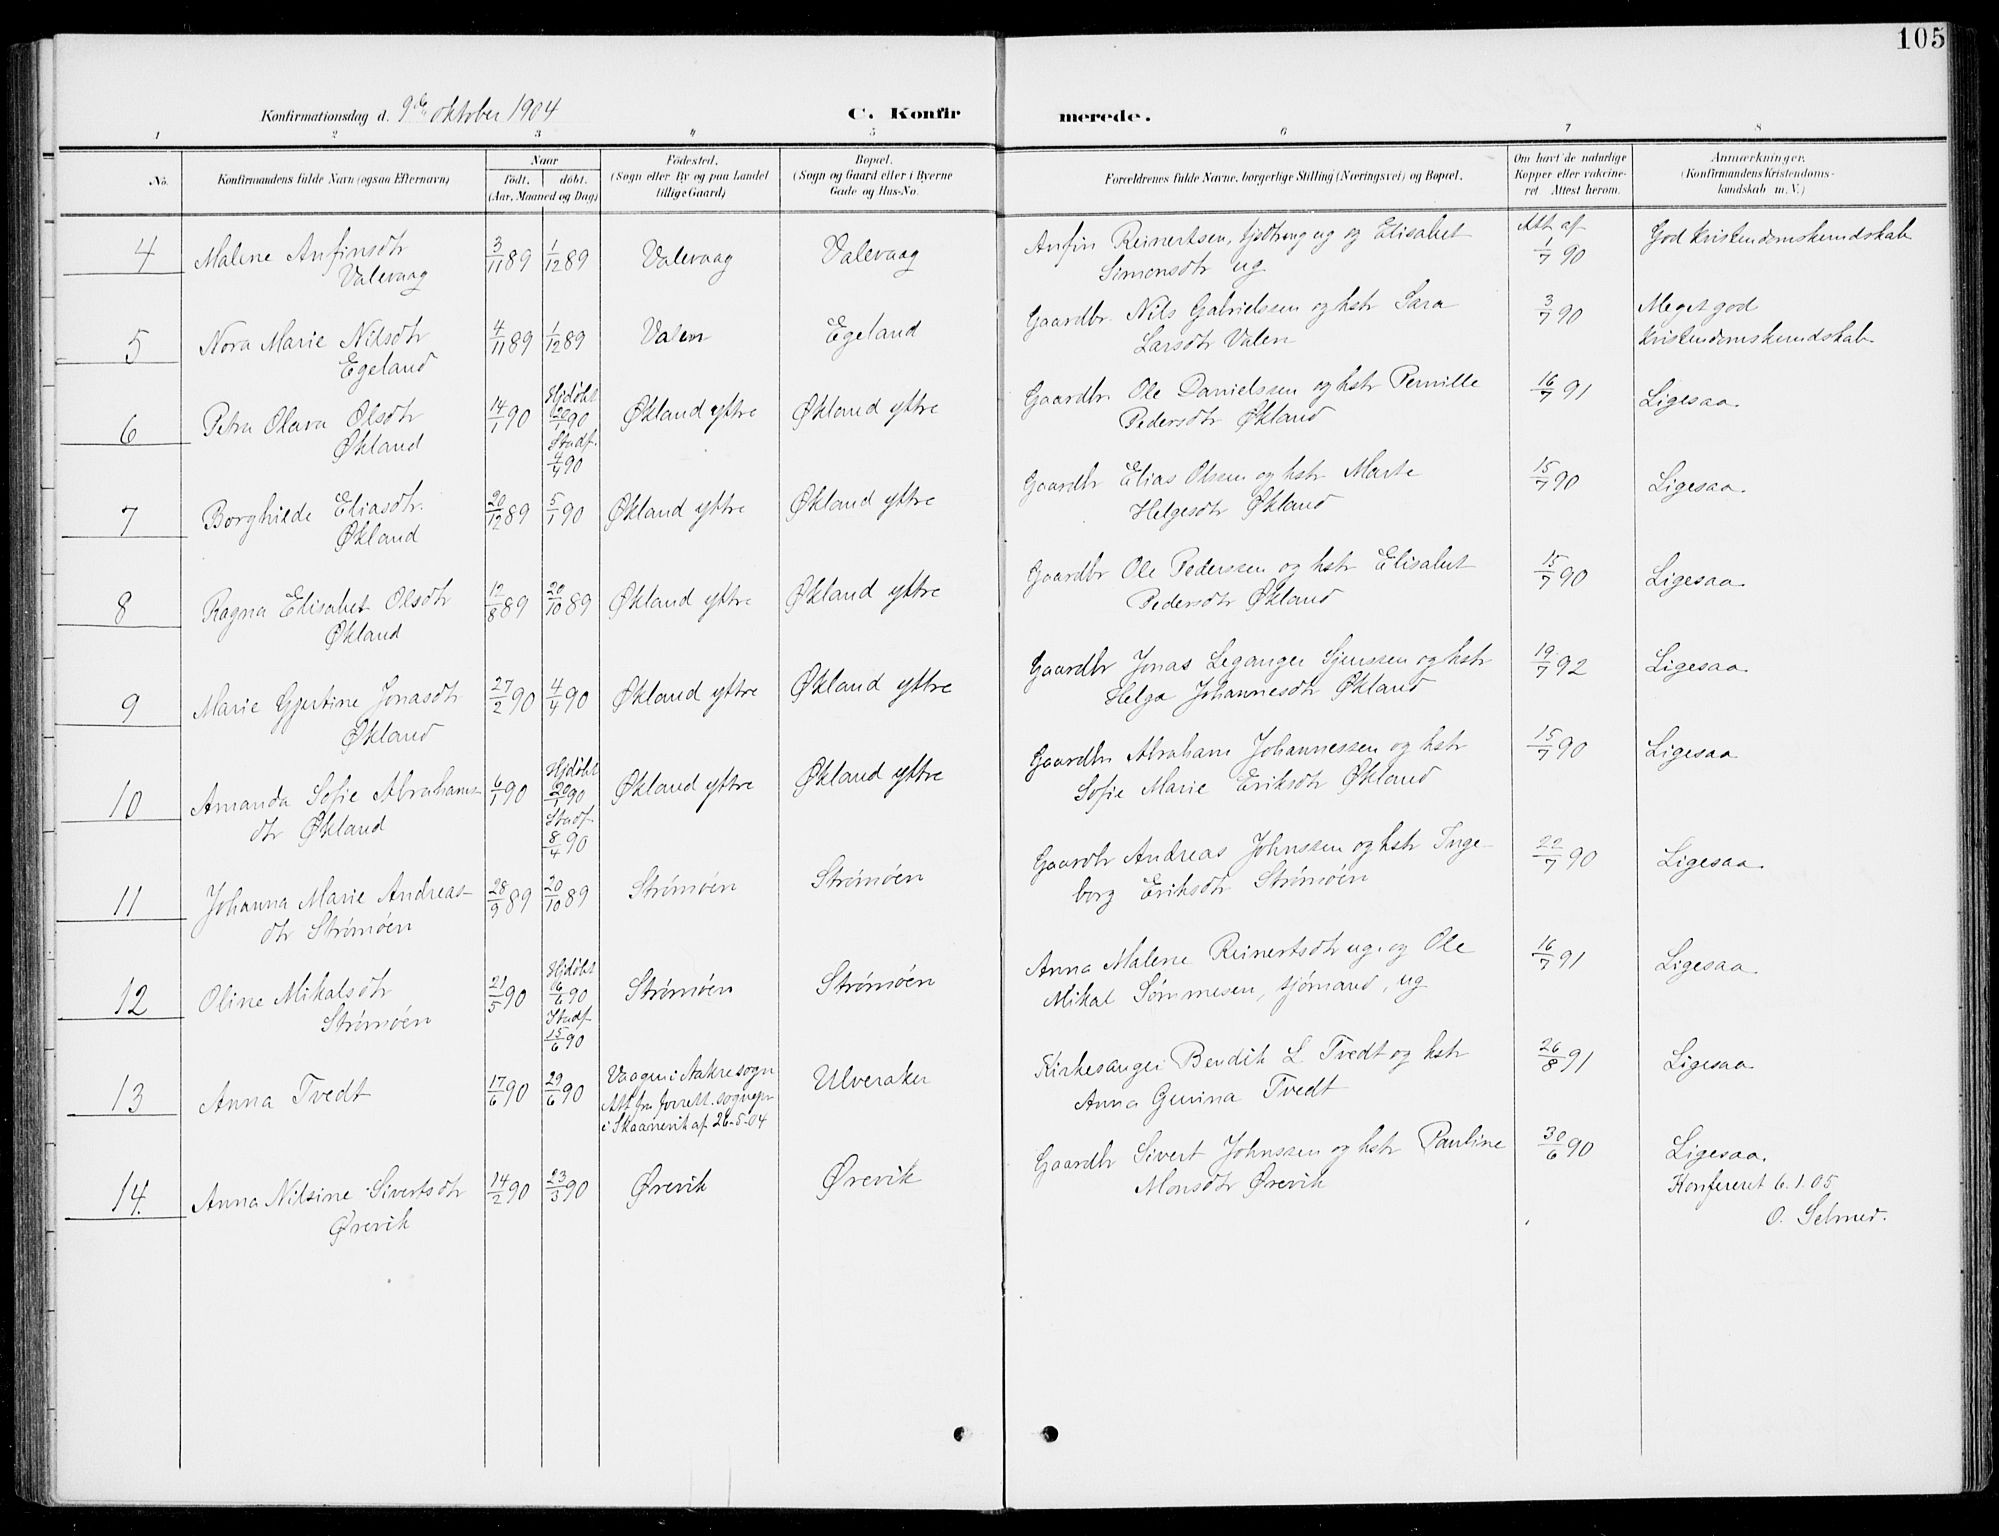 105
Konfirmationsdag d. 9de oktober 1904
C. Konfirmerede.
1 2 3 4 5 6 7 8
No. | Konfirmandens fulde Navn (ogsaa Efternavn) | Naar födt. döbt. (Aar, Maaned og Dag) | Födested. (Sogn eller By og paa Landet tillige Gaard) | Bopæl. (Sogn og Gaard eller i Byerne Gade og Hus-No. | Forældrenes fulde Navne, borgerlige Stilling (Næringsvei) og Bopæl. | Om havt de naturlige Kopper eller vakcineret Attest herom. | Anmærkninger. (Konfirmandens Kristendomskundskab m. V.)
4 | Malene Anfinsdtr Valevaag | 3/11 89 | 1/12 89 | Valevaag | Valevaag | Anfin Reinertsen, ug og Elisabet Simonsdtr ug | Att af 1/7 90 | God Kristendomskundskab
5 | Nora Marie Nilsdtr Egeland | 4/11 89 | 1/12 89 | Valen | Egeland | Gaardbr. Nils Gabrielssen og hstr Sara Larsdtr Valen | 3/7 90 | Meget god Kristendomskundskab
6 | Petra Olava Olsdtr Økland | 14/1 90 | Hjdøbt 90 Stadf. 4/4 90 | Økland yttre | Økland yttre | Gaardbr. Ole Danielssen og hstr Pernille Pedersdtr Økland | 16/7 91 | Ligesaa.
7 | Borghilde Eliasdtr. Økland | 20/12 89 | 5/1 90 | Økland yttre | Økland yttre | Gaardbr Elias Olssen og hstr Marte Helgesdtr Økland | 15/7 90 | Ligesaa.
8 | Ragna Elisabet Olsdtr Økland | 12/8 89 | 20/10 89 | Økland yttre | Økland yttre | Gaardbr Ole Pederssen og hstr Elisabet Pedersdtr Økland | 15/7 90 | Ligesaa.
9 | Marie Gjertine Jonasdtr Økland | 27/2 90 | 4/4 90 | Økland yttre | Økland yttre | Gaardbr Jonas Leganger Sjurssen og hstr Helga Johannesdtr Økland | 19/7 92 | Ligesaa.
10 | Amanda Sofie Abrahamsdtr Økland | 6/1 90 | Hjdøbt 20/1 90 Stadf 8/4 90 | Økland yttre | Økland yttre | Gaardbr Abraham Johannessen og hstr Sofie Marie Eriksdtr Økland | 15/7 90 | Ligesaa.
11 | Johanna Marie Andreasdtr Strømøen | 28/9 89 | 20/10 89 | Strømøen | Strømøen | Gaardbr Andreas Johnssen og hstr Ingeborg Eriksdtr Strømøen | 22/7 90 | Ligesaa.
12 | Oline Mikalsdtr Strømøen | 21/5 90 | Hjdøbt 90 Stadf 15/6 90 | Strømøen | Strømøen | Anna Malene Reinertsdtr ug. og Ole Mikal Sømmesen, sjømand, ug | 16/7 91 | Ligesaa.
13 | Anna Tvedt | 17/6 90 | 29/6 90 | Vaagen i Aakre sogn Att fra forrett. sogнepr i Skaanevik af 26-5-04 | Ulveraker | Kirkesanger Bendik L. Tvedt og hstr Anna Gurina Tvedt | 26/8 91 | Ligesaa.
14. | Anna Nilsine Sivertsdtr Ørevik | 14/2 90 | 23/3 90 | Ørevik | Ørevik | Gaardbr Sivert Johnssen og hstr Pauline Monsdtr Ørevik | 30/6 90 | Ligesaa.
Konfereret 6.1.05
O. Selmer.